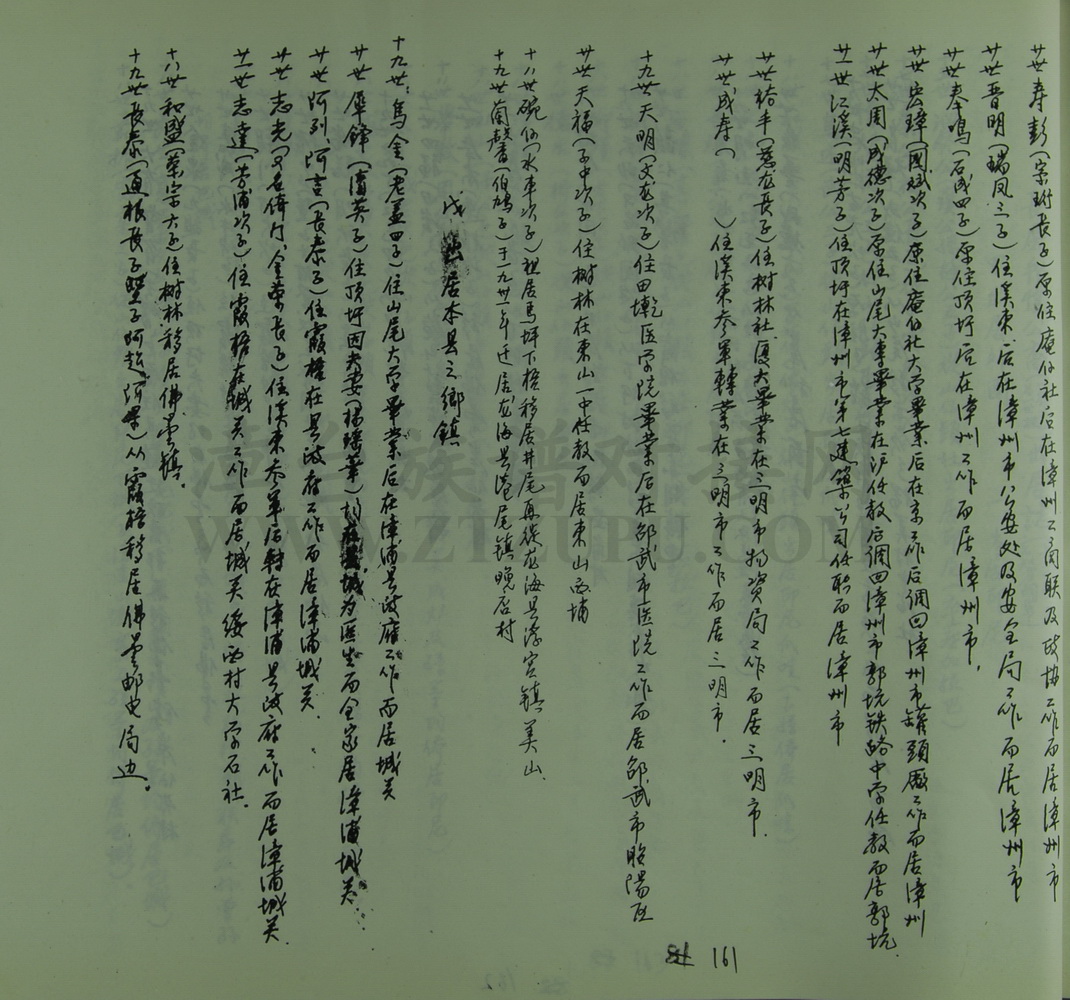 廿世寿彭(宗珩長子)原住庵仔社后在漳州工商联及政协工作而居漳州市
廿世晋明(瑞凤三子)住溪東后在漳州市公安处及安全局工作而居漳州市
廿世奉鳴(石成四子)原住頂坪后在漳州工作而居漳州市.
廿世宏璋(國斌次子)原住庵仔社大学畢業后在京工作后調回漳州市罐頭廠工作而居漳州
廿世太周(成德次子)原住山尾大専畢業在沪任教后調回漳州市郭坑铁路中学任教而居郭坑
廿一世江溪(明芳子)住頂坪在漳州市第七建築公司任职而居漳州市
廿世裕丰(慈龙長子)住树林社厦大畢業在三明市物資局工作而居三明市.
廿世成寿( )住溪東参軍轉業在三明市工作而居三明市.
十九世天明(文龙次子)住田墘医学院畢業后在邵武市医院工作而居邵武市昭陽区
廿世天福(子中次子)住树林在東山一中任教而居東山西埔
十八世碗仔(水来次子)祖居馬坪下梧移居井尾再從龙海县浮宫镇美山
十九世蘭馨(伯鳩子)于一九卅一年迁居龙海县港尾镇晚后村
戊 居本县之鄉鎮
十九世:烏金(老盖四子)住山尾大学畢業后在漳浦县政府工作而居城关
廿世犀鋒(清英子)住頂坪因夫妻(楊瑶華)均在县城为医生而全家居漳浦城关.
廿世阿列、阿吉(長泰子)住霞梧在县政府工作而居漳浦城关.
廿世志光(又名倚门、金葉長子)住溪東参軍后轉在漳浦县政府工作而居漳浦城关.
廿一世志達(芳浦次子)住霞梧在城关工作而居城关绥西村大学石社.
十八世和盛(萬字大子)住树林移居佛曇镇.
十九世長泰(通根長子 子阿超、阿景)从霞梧移居佛曇邮电局边.
161
漳台族谱对接网
WWW.ZTZUPU.COM